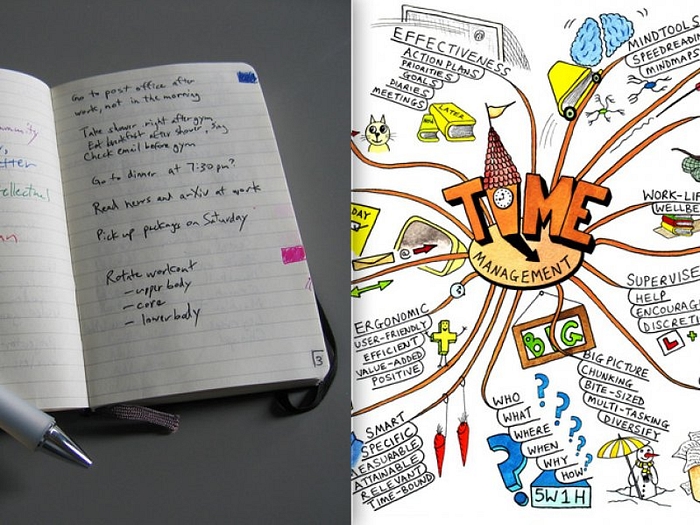 Go to post office after
work, not in the morning
Take shower right after gym
Eat breakfast after shower, 
Check email before gym
Go to dinner at 7:30pm?
Read news and a-Xiv at work
Pick up packages on Saturday
Rotate workout
- upper body
- core
- lower body
3
EFFECTIVENESS
ACTION PLANS
PRIORITIES
GOALS
DIARIES
MEETINGS
LATER
MINDTOOLS
SPEEDREADIN
MINDMAPS
TIME
MANAGEMENT
DAY
WORK-LIF
WELLBE
SUPERVISE
HELP
ENCOURAG
DISCRETI
L +
ERGONOMIC
USER-FRIENDLY
EFFICIENT
VALUE-ADDED
POSITIVE
BIG
BIG PICTURE
CHUNKING
BITE-SIZED
MULTI-TASKING
DIVERSIFY
SMART
SPECIFIC
MEASURABLE
ATTAINABLE
RELEVANT
TIME-BOUND
WHO
WHAT
WHERE
WHEN
WHY
HOW
? ? ? ? ? ?
5W1H